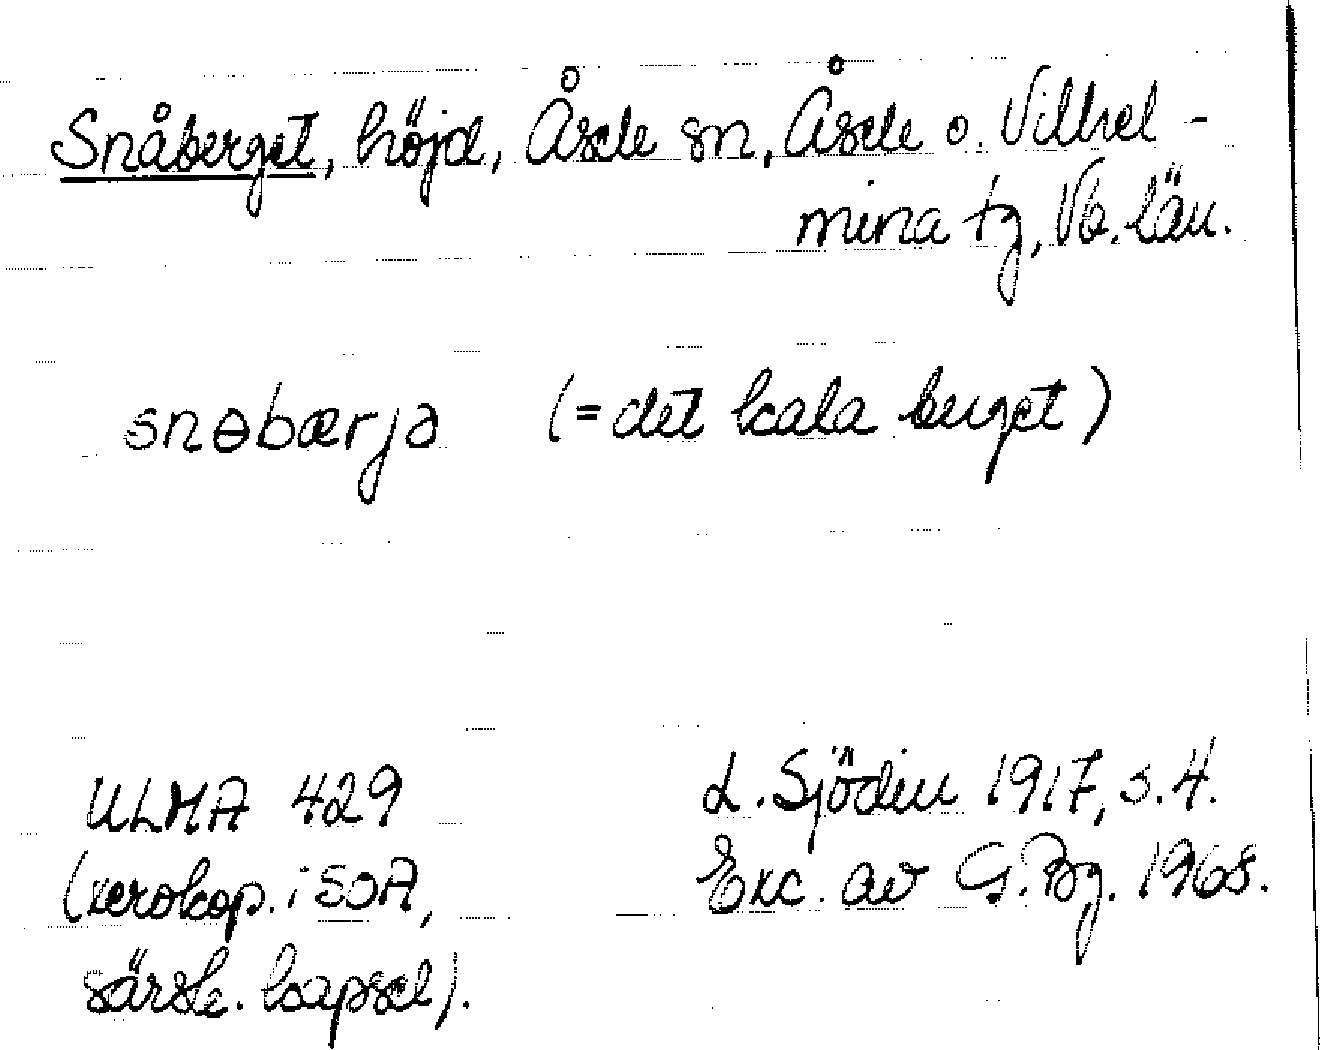 Snåberget, höjd, Åsele sn, Åsele o. Vilhel-
mina tg, Vb. län.
snɵbærjə (= det kala berget)
ULMA 429
(xerokop. i SOA,
särsk. kapsel).
L. Sjödin 1917, s. 4.
Exc. av G. Bg. 1968.